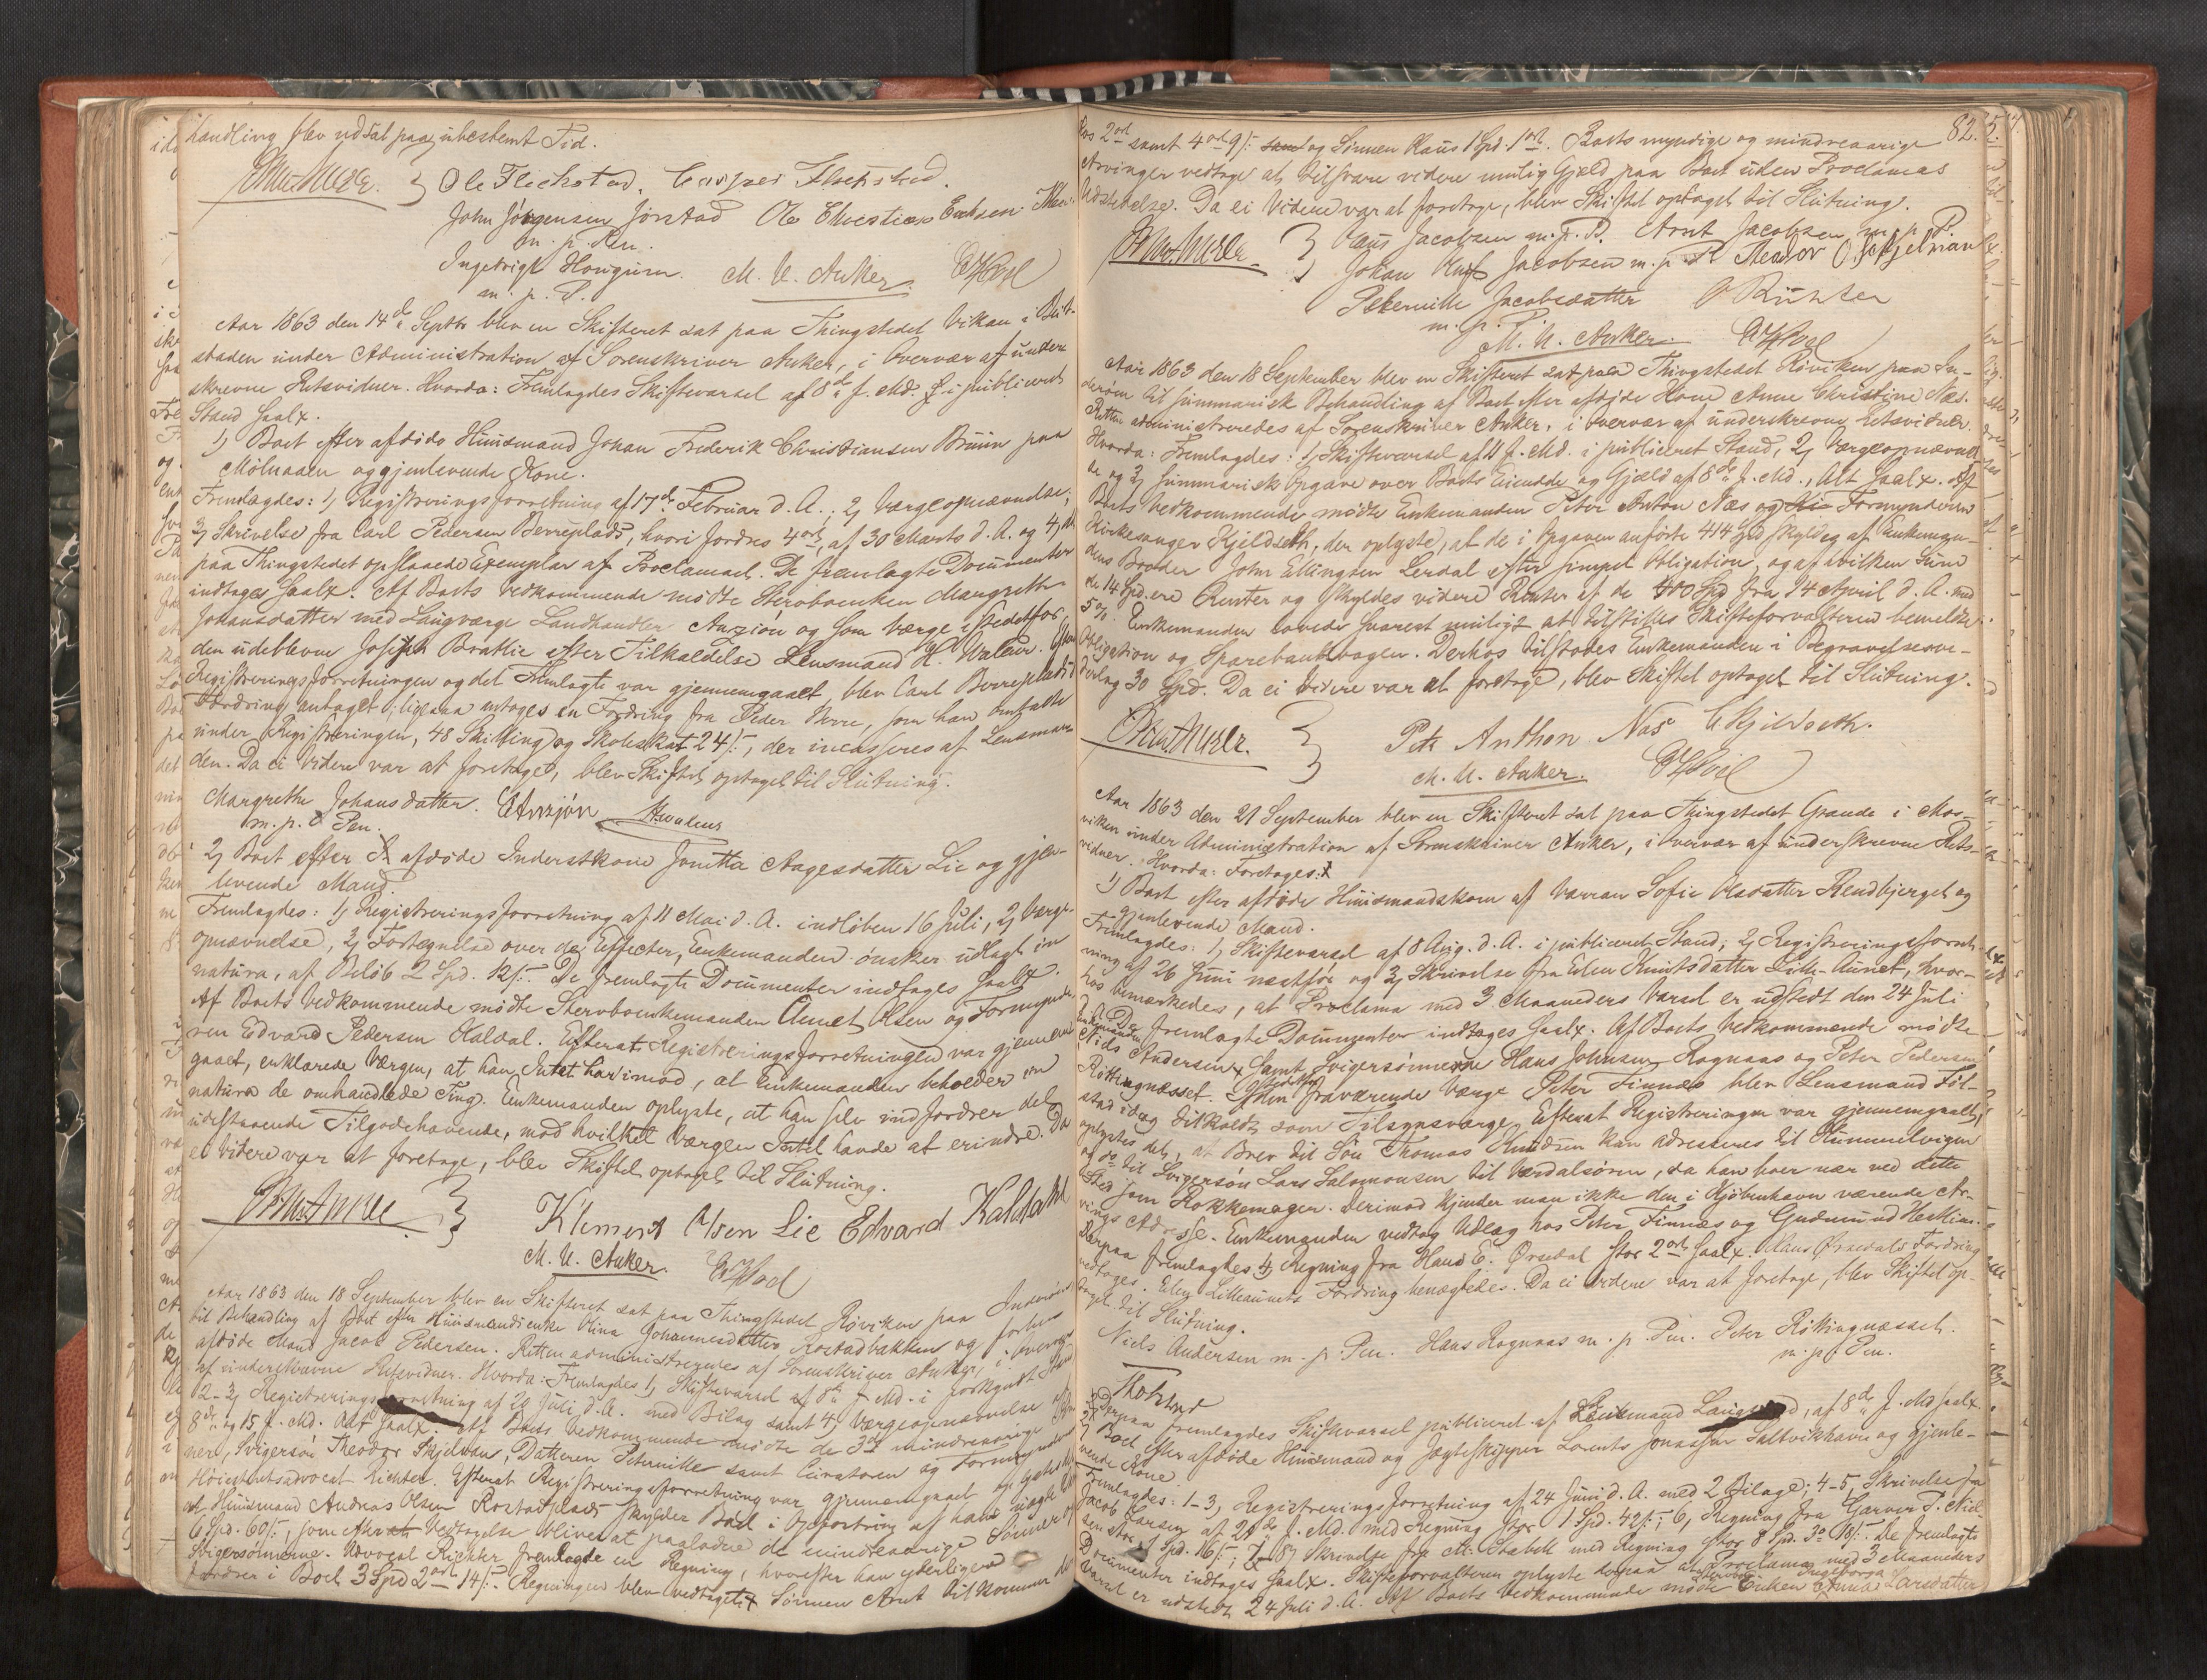 handling blev udsat paa ubestemt Tid.
Ole Flichstad. Casper Flichstad.
John Jörgensen Jörstad Ole Christian Erichsen
m. p. Pen.
Ingebrigt Hougum. M. U. Anker.
m. p. P.
Aar 1863 den 14de Septbr blev en Skifteret sat paa Thingstedet Vikan i Beit-
staden under Administration af Sorenskriver Anker, i Overvær af under-
skrevne Retsvidner. Hvorda: Fremlagdes Skiftevarsel af 8de f. Md. i publiceret
Stand saalx.
1) Boet efter afdöde Huusmand Johan Frederik Christiansen Bruun paa
Mölnaaen og gjenlevende Kone.
Fremlagdes: 1) Registreringsforretning af 17de Februar d. A.; 2) Værgeopnævnelse;
3) Skrivelse fra Carl Pedersen Berreplads, hvori fordres 4 ort, af 30 Marts d. A. og 4) et
paa Thingstedet opslaaede Exemplar af Proclamaet. De fremlagte Documenter
indtages saalx. Af Boets Vedkommende mödte Sterboenken Margrethe
Johansdatter med Laugværge Landhandler Anzjön og som Værge istedetfor
den udeblevne Joseph Brattlie efter Tilkaldelse Lensmand H. Waleur. Efterat
Registreringsforretningen og det Fremlagte var gjennemgaaet, blev Carl Berreplads's
Fordring antaget; ligesaa antoges en Fordring fra Peder Berre, som han omtalte
under Registreringen, 48 Skilling og Skoleskat 24 s., der incasseres af Lensman-
den. Da ei videre var at foretage, blev Skiftet optaget til Slutning.
Margrethe Johansdatter. CAnzjön HWaleur
m. p. Pen.
2) Boet efter afdöde Inderstkone Jonetta Aagesdatter Lie og gjen-
levende Mand.
Fremlagdes: 1) Registreringsforretning af 11 Mai d. A. indlöben 16 Juli, 2) Værge-
opnævnelse, 3) Fortegnelse over de Effecter, Enkemanden önsker udlagt in
natura, af Belöb 2 Spd. 12 s. De fremlagte Documenter indtages saalx.
Af Boets Vedkommende mödte Sterboenkemanden Clemet Olsen og Formynde-
ren Edvard Pedersen Kaldal. Efterat Registreringsforretningen var gjennem-
gaaet, erklærede Værgen, at han Intet har imod, at Enkemanden beholder in
natura de omhandlede Ting. Enkemanden oplyste, at han selv indfordrer det
udestaaende Tilgodehavende, mod hvilket Værgen Intet havde at erindre. Da
ei videre var at foretage, blev Skiftet optaget til Slutning.
Klemert Olsen Lie Edvard Kaldahl
M. U. Anker.
Aar 1863 den 18 September blev en Skifteret sat paa Thingstedet Röviken paa Inderöen
til Behandling af Boet efter Huusmandsenke Olina Johannesdatter Rostadbakken og forhen
afdöde Mand Jacob Pedersen. Retten administreredes af Sorenskriver Anker, i Overvær
af underskrevne Retsvidner. Hvorda: Fremlagdes 1) Skiftevarsel af 8de f. Md. i forkyndt Stand
2-3) Registreringsforretning af 20 Juli d. A. med Bilag samt 4) Værgeopnævnelse af
8de og 15 f. Md. Alt saalx. Af Boets Vedkommende mödte de 3de mindreaarige Sön-
ner, Svigersön Theodor Skjelvan, Datteren Peternille samt Curatoren og Formynderen
Höiesteretsadvocat Richter. Efterat Registreringsforretning var gjennemgaaet og
at Huusmand Andreas Olsen Rostadplads skylder Boet i Opfostring af hans
6 Spd. 60 s., som efter Vedtagelse bliver at paalodne de mindreaarige Sönner og
Svigersönnerne. Advocat Richter fremlagde en Regning, hvorefter han yderligere
fordrer i Boet 3 Spd 2 ort 14 s. Regningen blev vedtaget. Sönnen Arnt tilkommer
82.
hos 2 ort samt 4 ort 9 s. og Sönnen Claus 1 Spd. 1 ort. Boets myndige og mindreaarige
Arvinger vedtoge at tilsvare videre mulig Gjæld paa Boet uden Proclamas
Udstedelse. Da ei Videre var at foretage, blev Skiftet optaget til Slutning.
Claus Jacobsen m. p. P. Arnt Jacobsen m. p. P.
Johan Jacobsen m. p. P. Theodor O. Skjelvan
Peternille Jacobsdatter Richter
m. p. P.
M. U. Anker.
Aar 1863 den 18 September blev en Skifteret sat paa Thingstedet Röviken paa In-
deröen til summarisk Behandling af Boet efter afdöde Kone Anne Christine Næs.
Retten administreredes af Sorenskriver Anker, i Overvær af underskrevne Retsvidner.
Hvorda: Fremlagdes: 1) Skiftevarsel af 11 f. Md. i publiceret Stand, 2) Værgeopnævnel-
se og 3) Summarisk Opgave over Boets Eiendele og Gjæld af 8de f. Md., Alt saalx. Af
Boets Vedkommende mödte Enkemanden Peter Anton Næs og Formynderen
Kirkesanger Kjeldseth, der oplyste, at de i Opgaven anförte 414 Spd skyldes af Enkeman-
dens Broder John Ellingsen Lerdal efter simpel Obligation, og af hvilken Sum
de 14 Spd. ere Renter og skyldes videre Renter af de 400 Spd fra 14 April d. A. med
5 %. Enkemanden lovede snarest muligt at tilstille Skifteforvalteren bemeldte
Obligation og Sparebankbogen. Derhos tilstodes Enkemanden i Begravelsesve-
derlag 30 Spd. Da ei videre var at foretage, blev Skiftet optaget til Slutning.
Petr Anthon Næs CKjeldseth.
M. U. Anker.
Aar 1863 den 21 September blev en Skifteret sat paa Thingstedet Grande i Mos-
viken under Administration af Sorenskriver Anker, i Overvær af underskrevne Rets-
vidner. Hvorda: Foretages:
1) Boet efter afdöde Huusmandskone af Varran Sofie Olsdatter Rendbjerget og
gjenlevende Mand.
Fremlagdes: 1) Skiftevarsel af 8 Aug. d. A. i publiceret Stand; 2) Registreringsforret-
ning af 26 Juni næstför og 3) Skrivelse fra Eilen Knutsdatter Lille-Aunet, hvor-
hos bemærkedes, at Proclama med 3 Maaneders Varsel er udstedt den 24 Juli
d. A. De fremlagte Documenter indtages saalx. Af Boets Vedkommende mödte
Enkemanden
Niels Andersen samt Svigersönnerne Hans Johnsen Rognaas og Peter Pedersen
Röttingnæsset. Istedetfor fraværende Værge Peter Finnæs blev Lensmand Föl-
stad idag tilkaldt som Tilsynsværge. Efterat Registreringen var gjennemgaaet,
oplystes det, at Brev til Sön Thomas Knudsen kan adresseres til Hummelvigen
og do til Svigersön Lars Salomonsen til Værdalsören, da han boer nær ved dette
Sted som Rokkemager. Derimod kjender man ikke den i Kjöbenhavn værende Ar-
vings Adresse. Enkemanden vedtog Udlæg hos Peter Finnæs og Gudmund
Derpaa fremlagdes 4) Regning fra Hans E. Örsedal stor 2 ort saalx. Hans Örsedals Fordring
vedtoges. Eilen Lilleaunets Fordring benægtedes. Da ei videre var at foretage, blev Skiftet op-
taget til Slutning.
Niels Andersen m. p. Pen. Hans Rognaas m. p. Pen. Peter Röttingnæsset.
m. p. Pen.
Derpaa fremlagdes Skiftevarsel publiceret af Lensmand, af 8de f. Md saalx.
2) Boet efter afdöde Huusmand og Jægteskipper Lorents Jonassen Saltvikhavn og gjenle-
vende Kone.
Fremlagdes: 1-3, Registreringsforretning af 24 Juni d. A. med 2 Bilage; 4-5, Skrivelse fra
Jacob Larsen af 21de f. Md. med Regning stor 1 Spd. 42 s.; 6, Regning fra Garver P. Niel-
sen stor Spd. 16 s.; 7-8) Skrivelse fra M. Stabell med Regning stor 8 Spd. 3 o 18 s. De fremlagte
Documenter indtages saalx. Skifteforvalteren oplyste derpaa at Proclama med 3 Maaneders
Varsel er udstedt 24 Juli d. A. Af Boets Vedkommende mödte Enken Ingeborg Anna Larsdatter